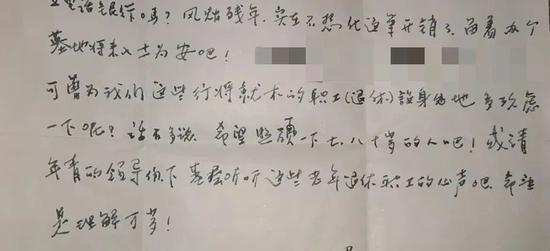 风烛残年，实在不想化这笔开销了，留着办个
墓地将来入土为安吧！
可曾为我们这些行将就木的职工(退休)设身处地多考虑
一下呢？话不多说，希望照顾一下七、八十岁的人吧！或请
年青的领导们下基层听听这些老年退休职工的心声吧，希望
是理解万岁！